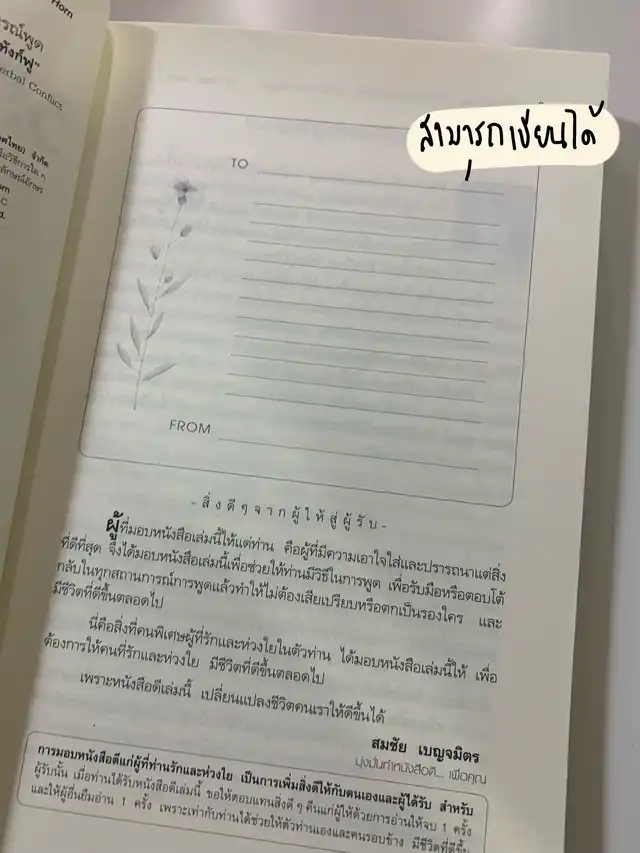 Horn
ารณ์พูด
ทังก์ฟู"
erbal Conflict
ศไทย) จำกัด
C
สามารถเขียนได้
TO
FROM
-สิ่งดีๆจากผู้ให้สู่ผู้รับ-
ผู้ที่มอบหนังสือเล่มนี้ให้แด่ท่าน คือผู้ที่มีความเอาใจใส่และปรารถนาแต่สิ่ง
ที่ดีที่สุด จึงได้มอบหนังสือเล่มนี้เพื่อช่วยให้ท่านมีวิธีในการพูด เพื่อรับมือหรือตอบโต้
กลับในทุกสถานการณ์การพูดแล้วทำให้ไม่ต้องเสียเปรียบหรือตกเป็นรองใคร และ
มีชีวิตที่ดีขึ้นตลอดไป
นี่คือสิ่งที่คนพิเศษผู้ที่รักและห่วงใยในตัวท่าน ได้มอบหนังสือเล่มนี้ให้ เพื่อ
ต้องการให้คนที่รักและห่วงใย มีชีวิตที่ดีขึ้นตลอดไป
เพราะหนังสือดีเล่มนี้ เปลี่ยนแปลงชีวิตคนเราให้ดีขึ้นได้
สมชัย เบญจมิตร
มุ่งมั่นทำหนังสือดี... เพื่อคุณ
การมอบหนังสือดีแก่ผู้ที่ท่านรักและห่วงใย เป็นการเพิ่มสิ่งดีให้กับตนเองและผู้ได้รับ สำหรับ
ผู้รับนั้น เมื่อท่านได้รับหนังสือเล่มนี้ ขอให้ตอบแทนสิ่งดีๆ คืนแก่ผู้ให้ด้วยการอ่านให้จบ 1 ครั้ง
และให้ผู้อื่นยืมอ่าน 1 ครั้ง เพราะเท่ากับท่านได้ช่วยให้ตัวท่านเองและคนรอบข้าง มีชีวิตที่ดีขึ้น